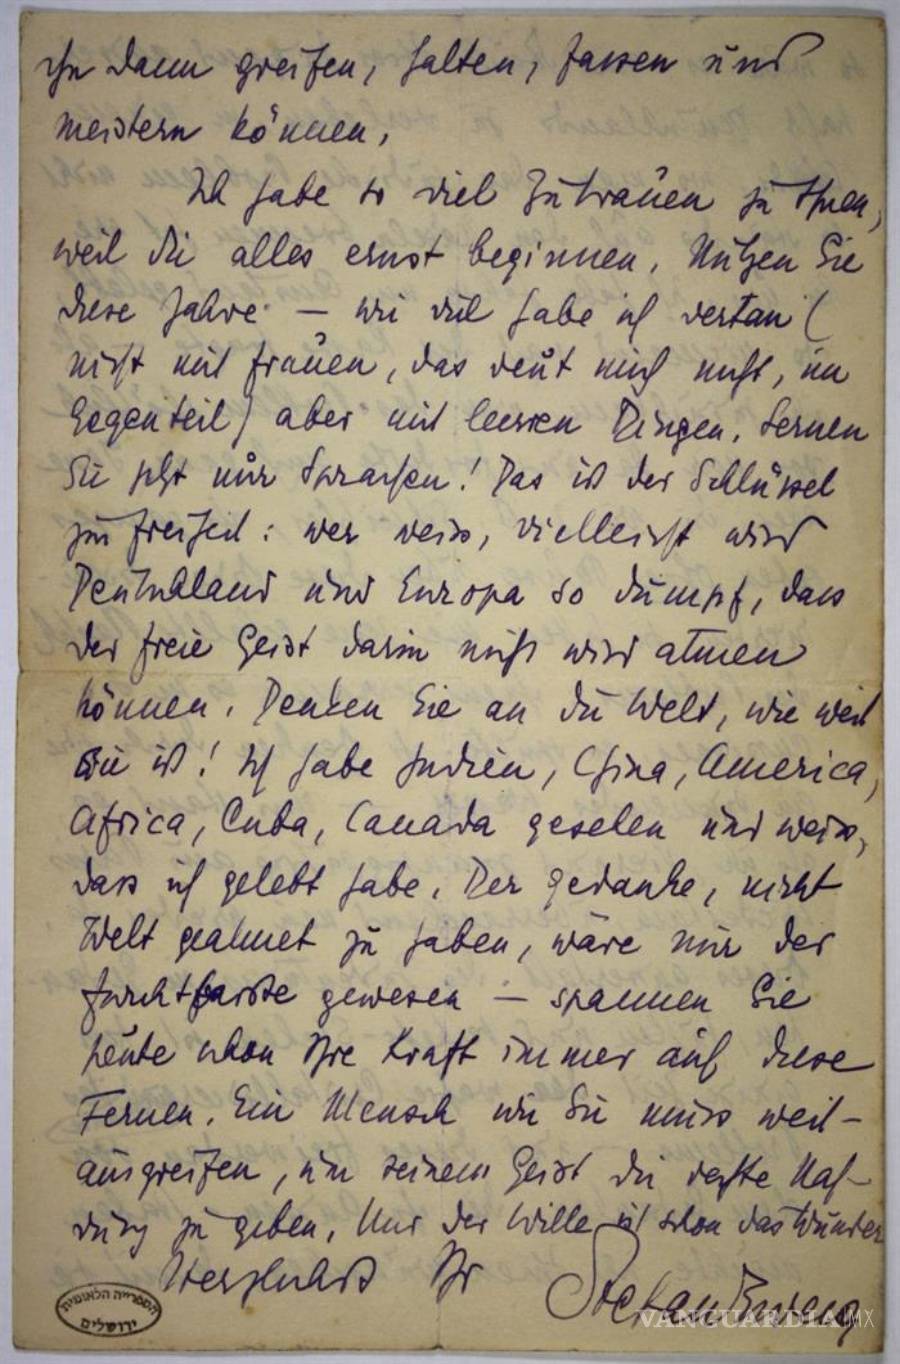 ihn dann greifen, halten, fassen und
meistern können.
Ich habe so viel Zutrauen zu Ihnen,
weil Sie alles ernst beginnen. Nützen Sie
diese Jahre – wie viel habe ich vertan (
nicht mit Frauen, das reut mich nicht, im
Gegenteil) aber mit leeren Dingen. Lernen
Sie jetzt nur Sprachen! Das ist der Schlüssel
zur Freiheit: wer weiss, vielleicht wird
Deutschland und Europa so dumpf, dass
der freie Geist darin nicht wird atmen
können. Denken Sie an die Welt, wie weit
sie ist! Ich habe Indien, China, America,
Africa, Cuba, Canada gesehen und weiss,
dass ich gelebt habe. Der Gedanke, nicht
Welt geahnet zu haben, wäre mir der
furchtbarste gewesen – spannen Sie
heute schon Ihre Kraft immer auf diese
Fernen. Ein Mensch wie Sie muss weit-
ausgreifen, um seinem Geist die rechte Nah-
rung zu geben. Nur der Wille ist schon das Wunder
Herzlichst Ihr
Stefan Zweig
הספרייה הלאומית
ירושלים
VANGUARDIA MX